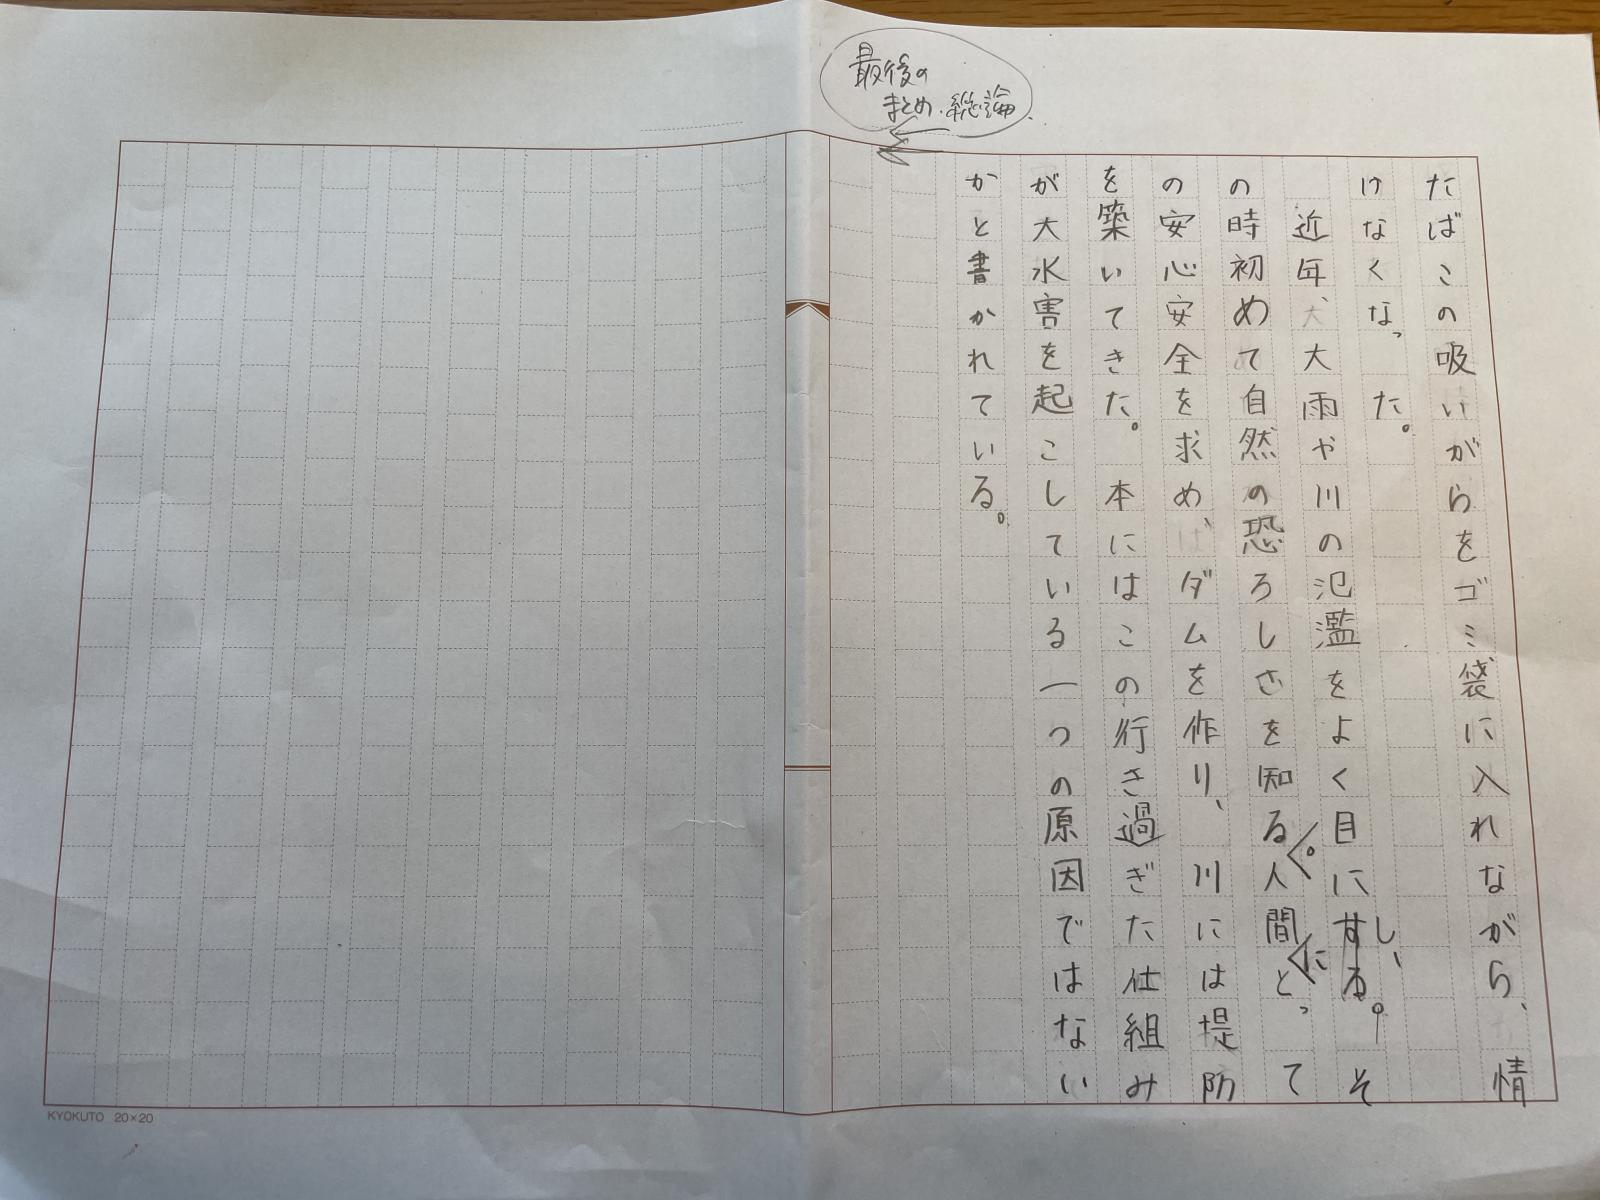 最後の
まとめ・総論
たばこの吸いがらをゴミ袋に入れながら、情
けなくなった。
近年、大雨や川の氾濫をよく目にする。そ
し、
の時初めて自然の恐ろしさを知る。人間にとって
の安心安全を求め、ダムを作り、川には堤防
を築いてきた。本にはこの行き過ぎた仕組み
が大水害を起こしている一つの原因ではない
かと書かれている。
KYOKUTO 20×20